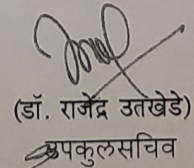 (डॉ. राजेंद्र उतखेडे)
उपकुलसचिव